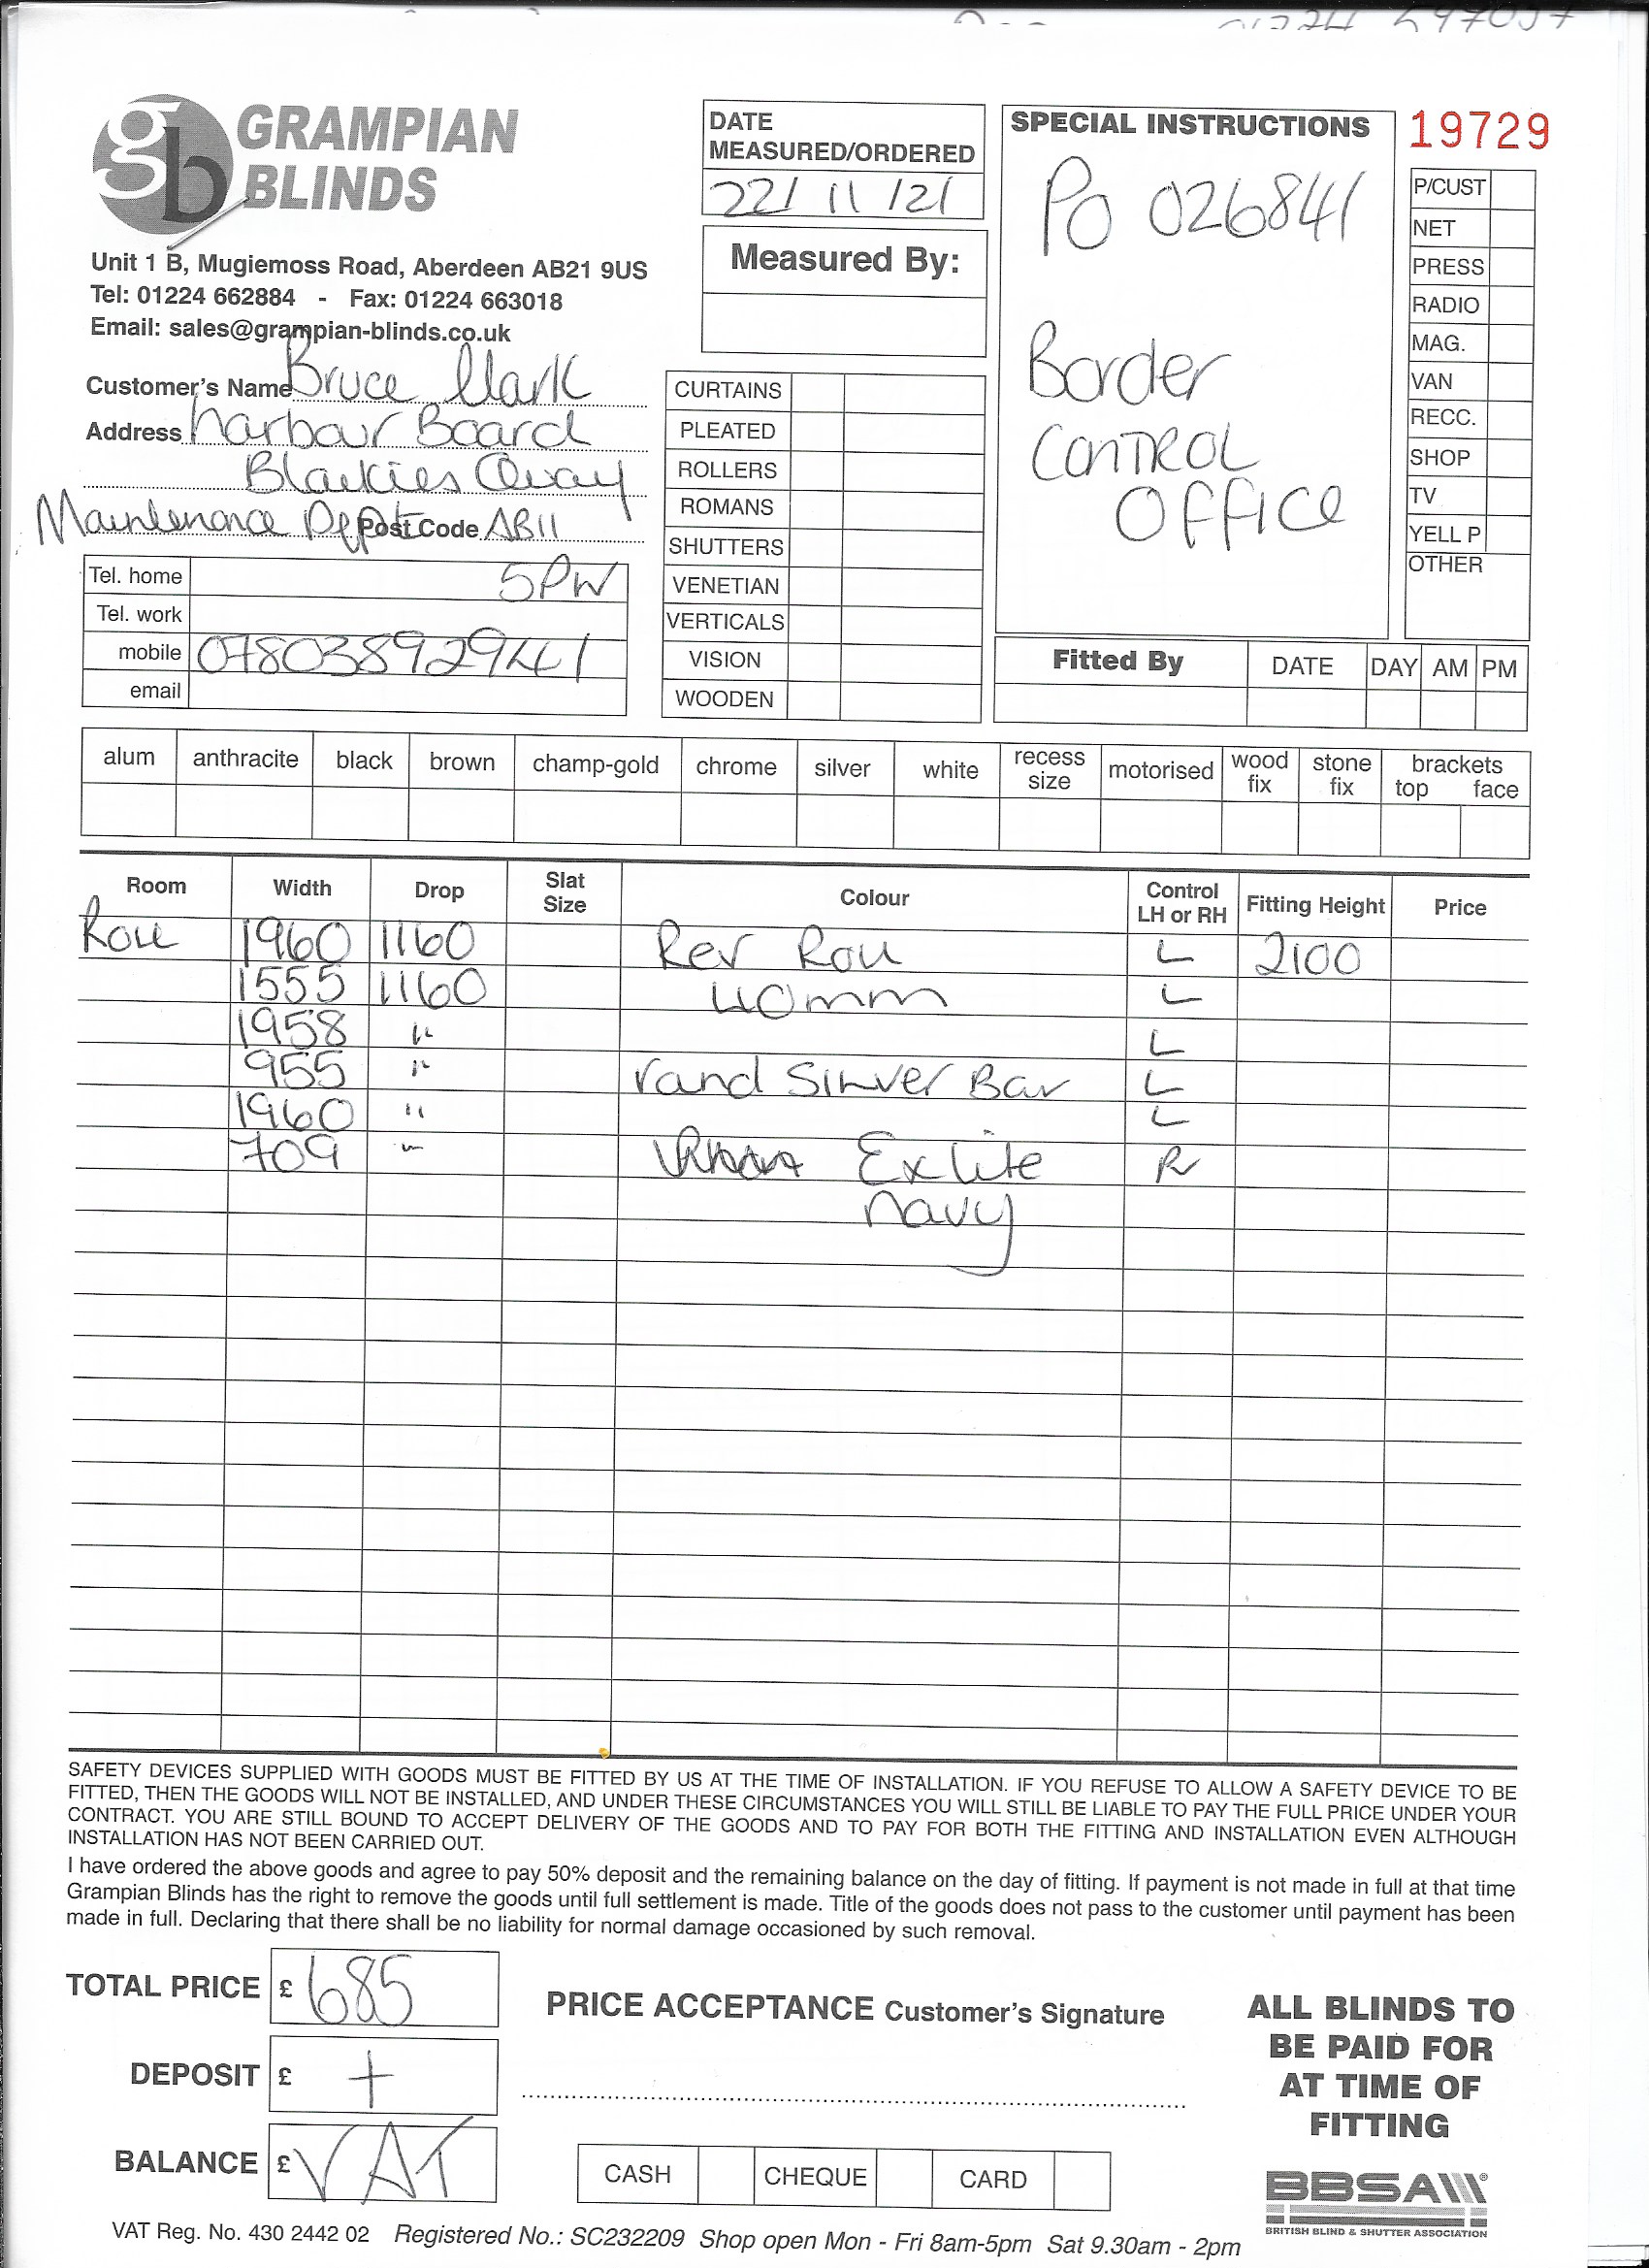 GRAMPIAN
BLINDS
Unit 1 B, Mugiemoss Road, Aberdeen AB21 9US
Tel: 01224 662884 - Fax: 01224 663018
Email: sales@grampian-blinds.co.uk
DATE
MEASURED/ORDERED
22/11/21
Measured By:
SPECIAL INSTRUCTIONS
PO 026841
Border
CONTROL
OFFICE
19729
P/CUST
NET
PRESS
RADIO
MAG.
VAN
RECC.
SHOP
TV
YELL P
OTHER
Customer's Name Bruce Clark
Address Harbour Board
Blaikies Quay
Maintenance Dept Post Code AB11
Tel. home 5PW
Tel. work
mobile 07803892941
email
CURTAINS
PLEATED
ROLLERS
ROMANS
SHUTTERS
VENETIAN
VERTICALS
VISION
WOODEN
Fitted By DATE DAY AM PM
alum anthracite black brown champ-gold chrome silver white recess size motorised wood fix stone fix brackets top face
Room Width Drop Slat Size Colour Control LH or RH Fitting Height Price
Roll 1960 1160 Rev Roll L 2100
1555 1160 40mm L
1958 " L
955 " rand Silver Bar L
1960 " L
709 " Exlite R
navy
SAFETY DEVICES SUPPLIED WITH GOODS MUST BE FITTED BY US AT THE TIME OF INSTALLATION. IF YOU REFUSE TO ALLOW A SAFETY DEVICE TO BE
FITTED, THEN THE GOODS WILL NOT BE INSTALLED, AND UNDER THESE CIRCUMSTANCES YOU WILL STILL BE LIABLE TO PAY THE FULL PRICE UNDER YOUR
CONTRACT. YOU ARE STILL BOUND TO ACCEPT DELIVERY OF THE GOODS AND TO PAY FOR BOTH THE FITTING AND INSTALLATION EVEN ALTHOUGH
INSTALLATION HAS NOT BEEN CARRIED OUT.
I have ordered the above goods and agree to pay 50% deposit and the remaining balance on the day of fitting. If payment is not made in full at that time
Grampian Blinds has the right to remove the goods until full settlement is made. Title of the goods does not pass to the customer until payment has been
made in full. Declaring that there shall be no liability for normal damage occasioned by such removal.
TOTAL PRICE £ 685
DEPOSIT £ +
BALANCE £ VAT
PRICE ACCEPTANCE Customer's Signature
CASH CHEQUE CARD
ALL BLINDS TO
BE PAID FOR
AT TIME OF
FITTING
BBSA
BRITISH BLIND & SHUTTER ASSOCIATION
VAT Reg. No. 430 2442 02 Registered No.: SC232209 Shop open Mon - Fri 8am-5pm Sat 9.30am - 2pm